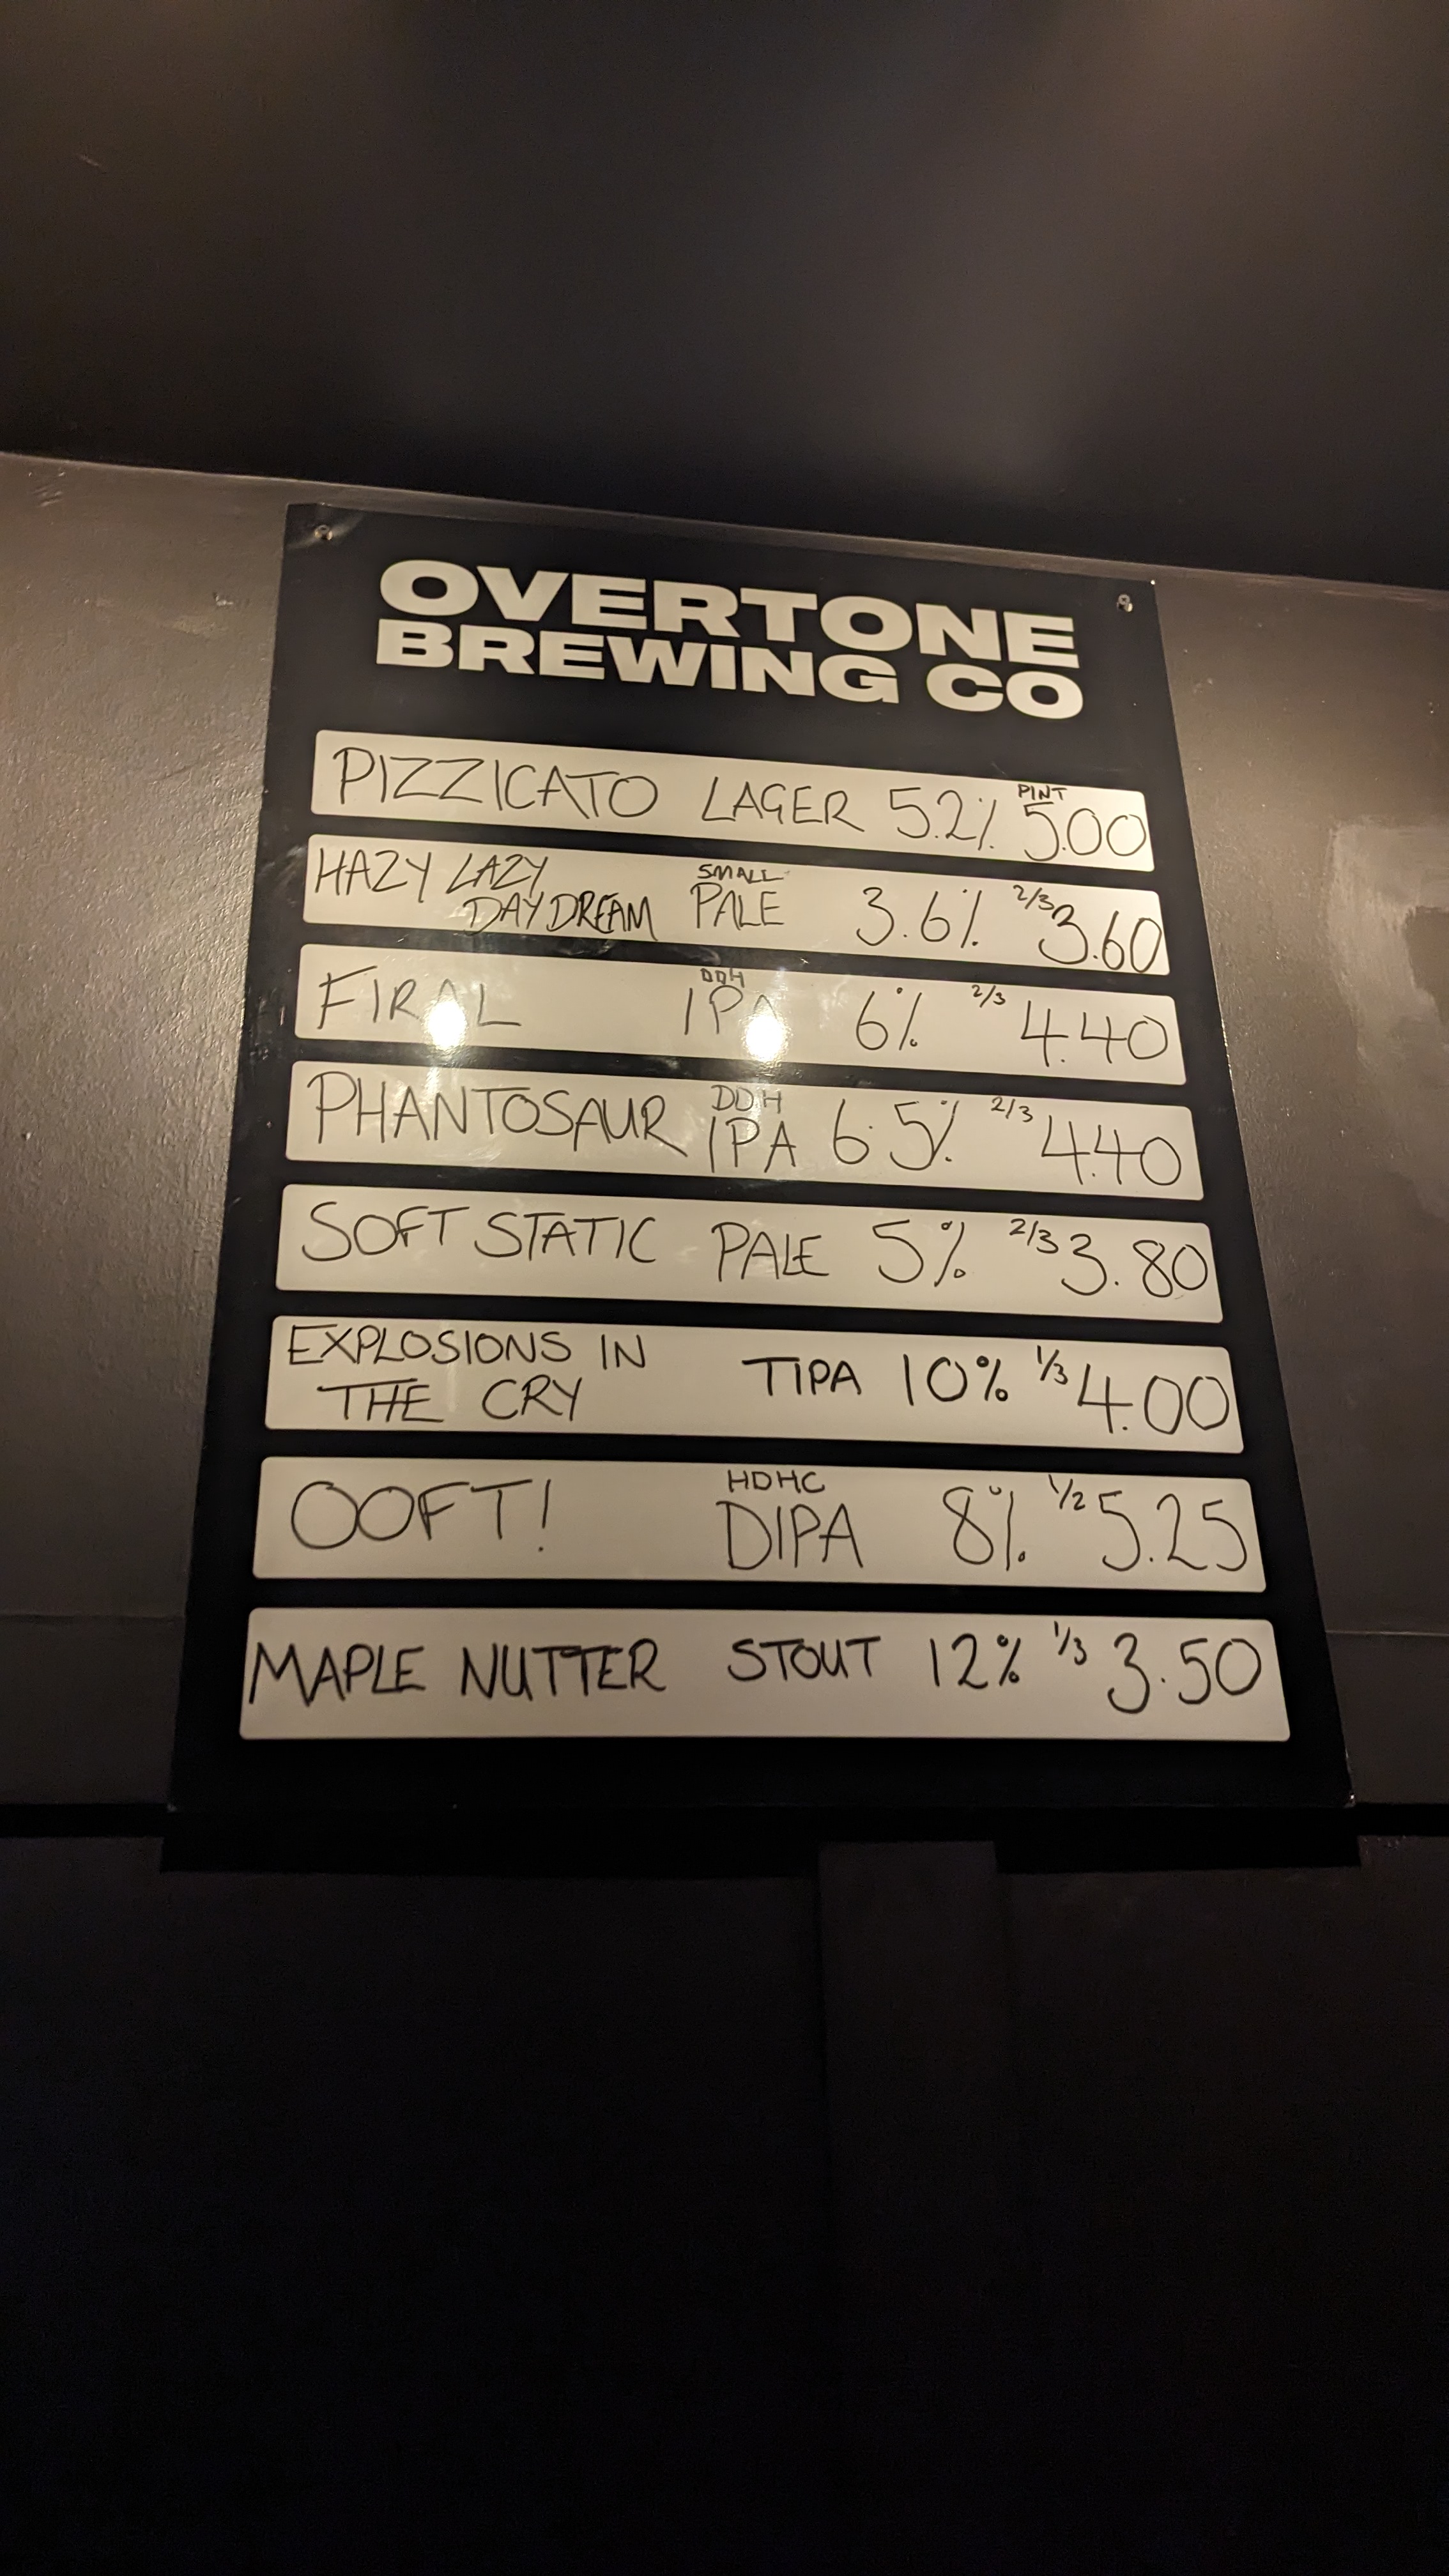 OVERTONE
BREWING CO
PIZZICATO LAGER 5.2% PINT 5.00
HAZY LAZY DAYDREAM SMALL PALE 3.6% 2/3 3.60
DDH IPA 6% 2/3 4.40
PHANTOSAUR DDH IPA 6.5% 2/3 4.40
SOFT STATIC PALE 5% 2/3 3.80
EXPLOSIONS IN THE CRY TIPA 10% 1/3 4.00
OOFT! HDHC DIPA 8% 1/2 5.25
MAPLE NUTTER STOUT 12% 1/3 3.50